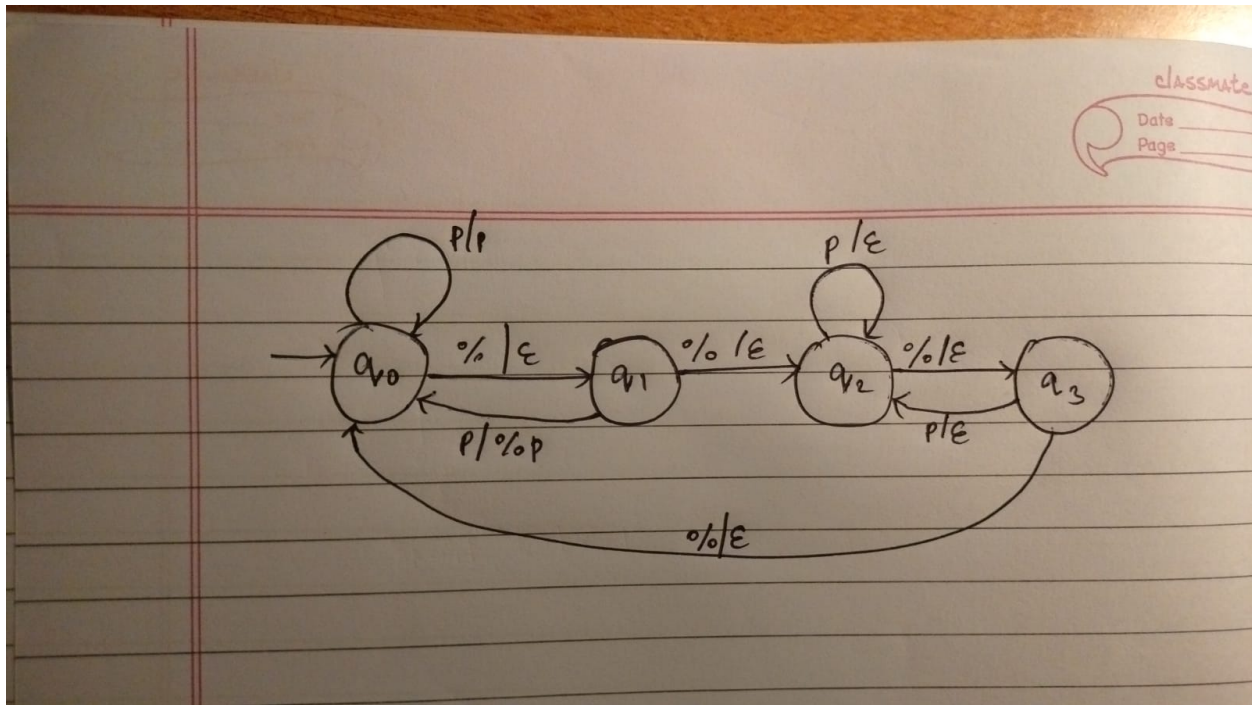 classmate
Date
Page
P/P
P/ε
%/ε
%/ε
%/ε
q0
q1
q2
q3
P/%P
P/ε
%/ε